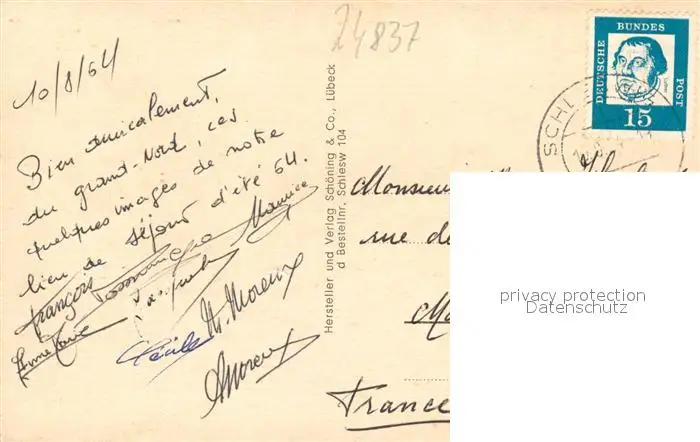 10/8/64
Bien amicalement,
du grand-Nord, ces
quelques images de notre
lieu de séjour d'été 64.
François Dominique Maurice
Anne Marie
Cécile M. Moreux
AMoreux
24837
Hersteller und Verlag Schöning & Co., Lübeck
d Bestellnr, Schlesw 104
DEUTSCHE BUNDES POST
15
SCHL
Monsieur
rue de
France
privacy protection
Datenschutz